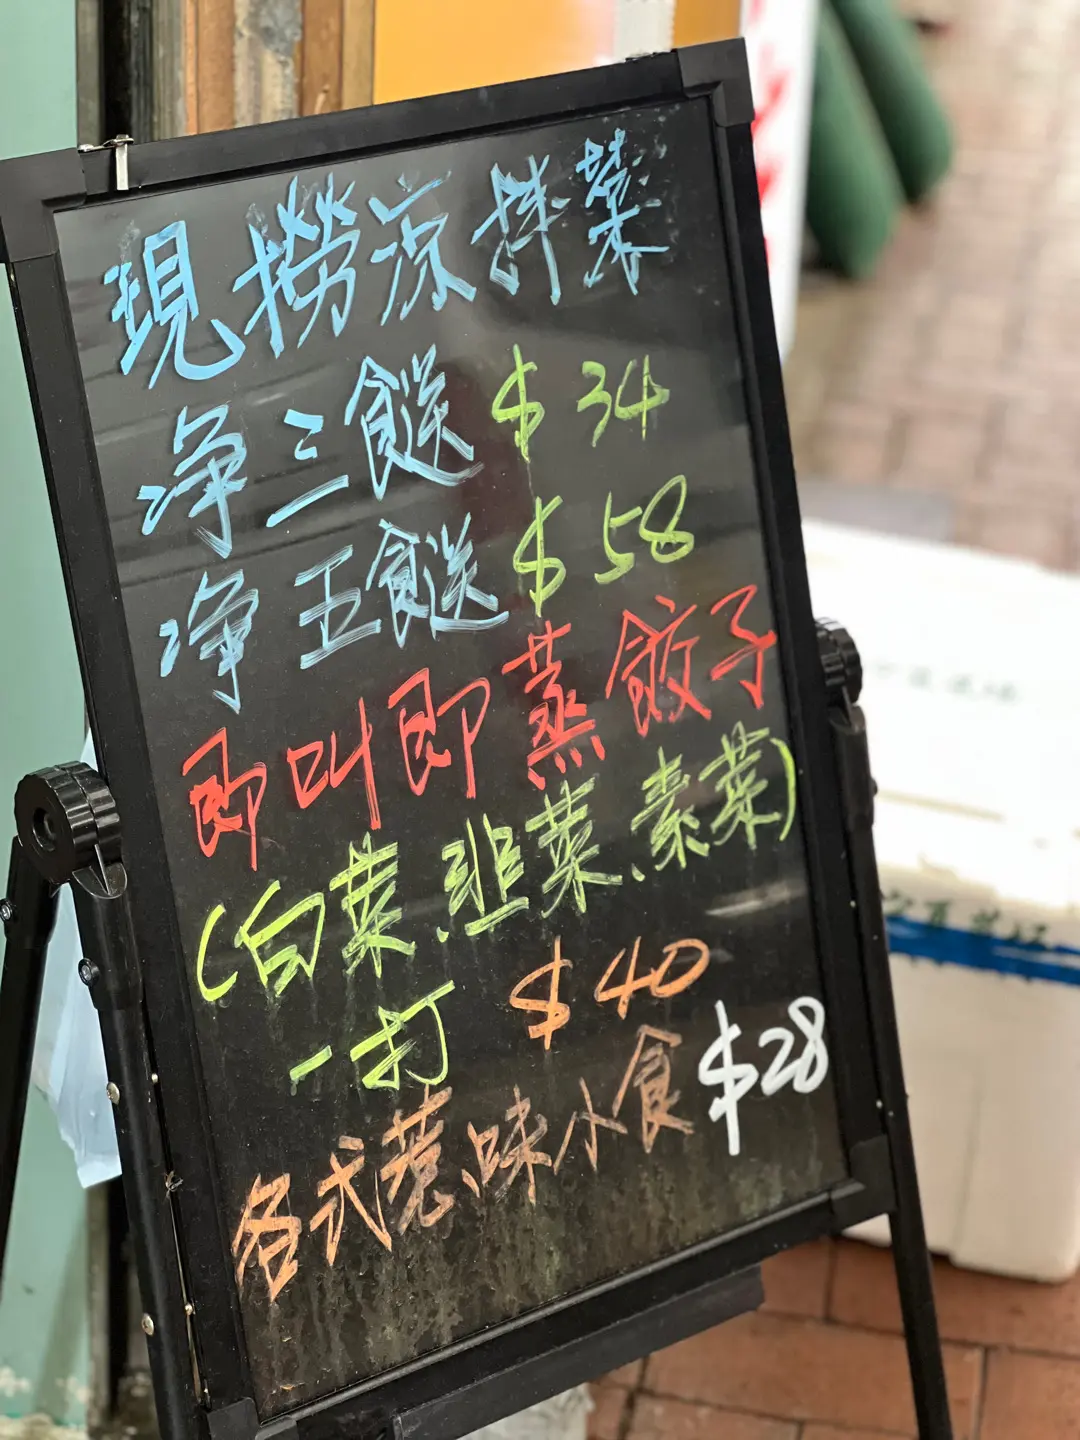 現撈涼拌菜
净三餸 $34
净五餸 $58
即叫即蒸餃子
(白菜、韭菜、素菜)
一打 $40
各式惹味小食 $28